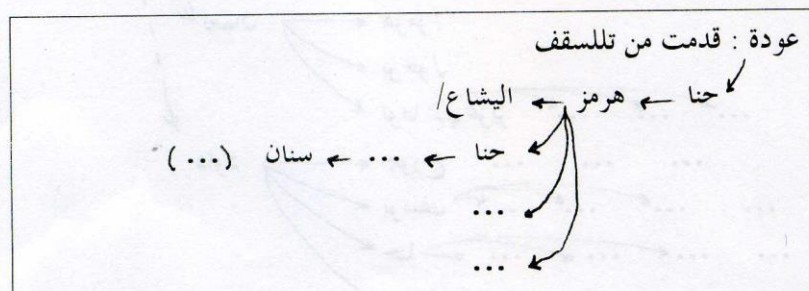 عودة : قدمت من تللسقف
حنا ← هرمز ← اليشاع/
حنا ← ... ← سنان (...)
...
...